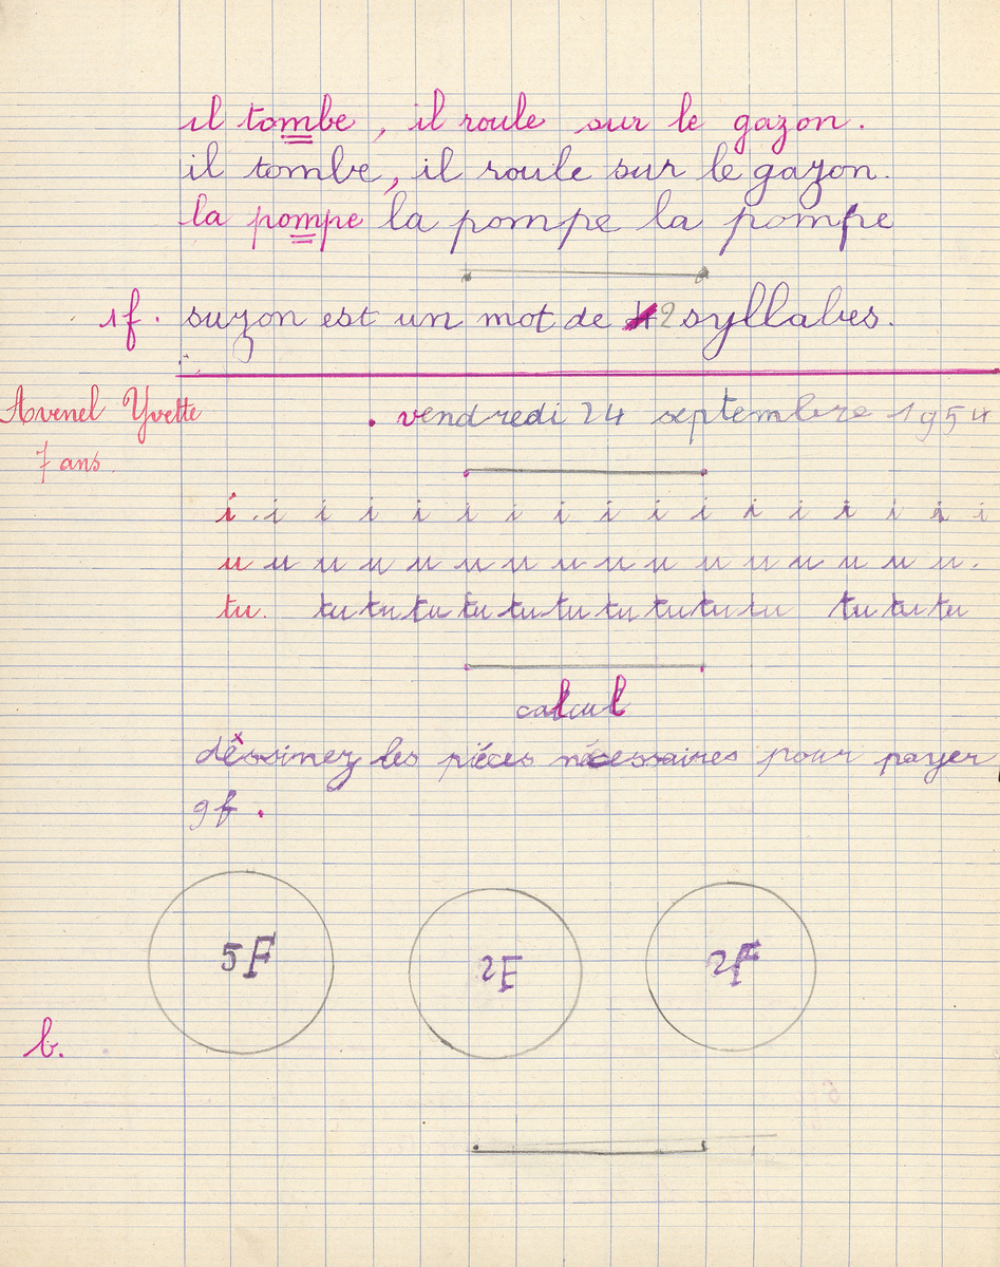 il tombe, il roule sur le gazon.
il tombe, il roule sur le gazon.
la pompe la pompe la pompe
1f. suzon est un mot de 2 syllabes.
Avenel Yvette
7 ans.
. vendredi 24 septembre 1954
i . i i i i i i i i i i i i i i i i
u u u u u u u u u u u u u u u u.
tu. tu tu tu tu tu tu tu tu tu tu tu tu tu
calcul
dessinez les pièces nécessaires pour payer
9f.
5F 2F 2F
b.